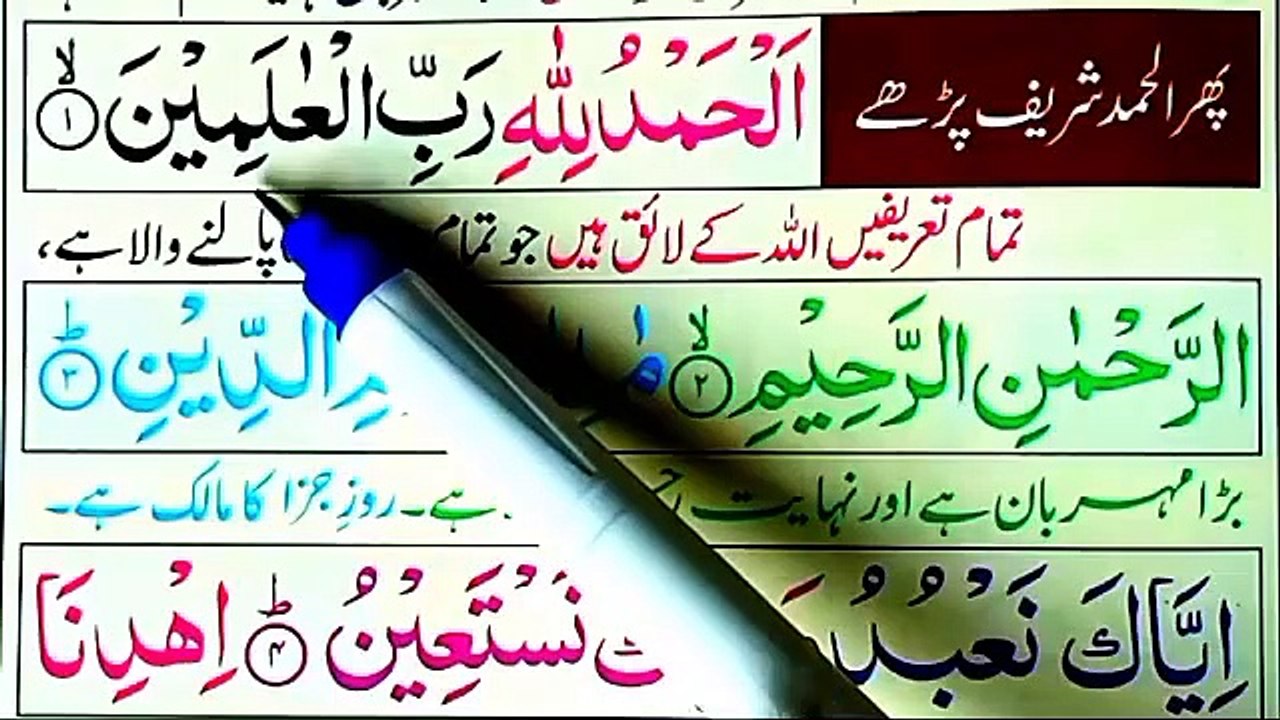 پھر الحمد شریف پڑھے
اَلْحَمْدُ لِلّٰهِ رَبِّ الْعٰلَمِيْنَ ۙ ۱
تمام تعریفیں اللہ کے لائق ہیں جو تمام پالنے والا ہے،
الرَّحْمٰنِ الرَّحِيْمِ ۙ ۲ الدِّيْنِ ؕ ۳
بڑا مہربان ہے اور نہایت ہے۔ روزِ جزا کا مالک ہے۔
اِيَّاكَ نَعْبُدُ نَسْتَعِيْنُ ؕ ۴ اِهْدِنَا